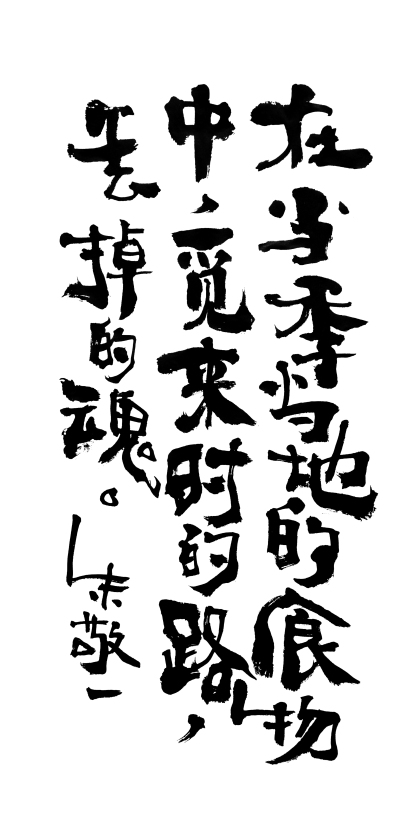 在当季当地的食物
中，觅来时的路，
丢掉的魂。
朱敬一